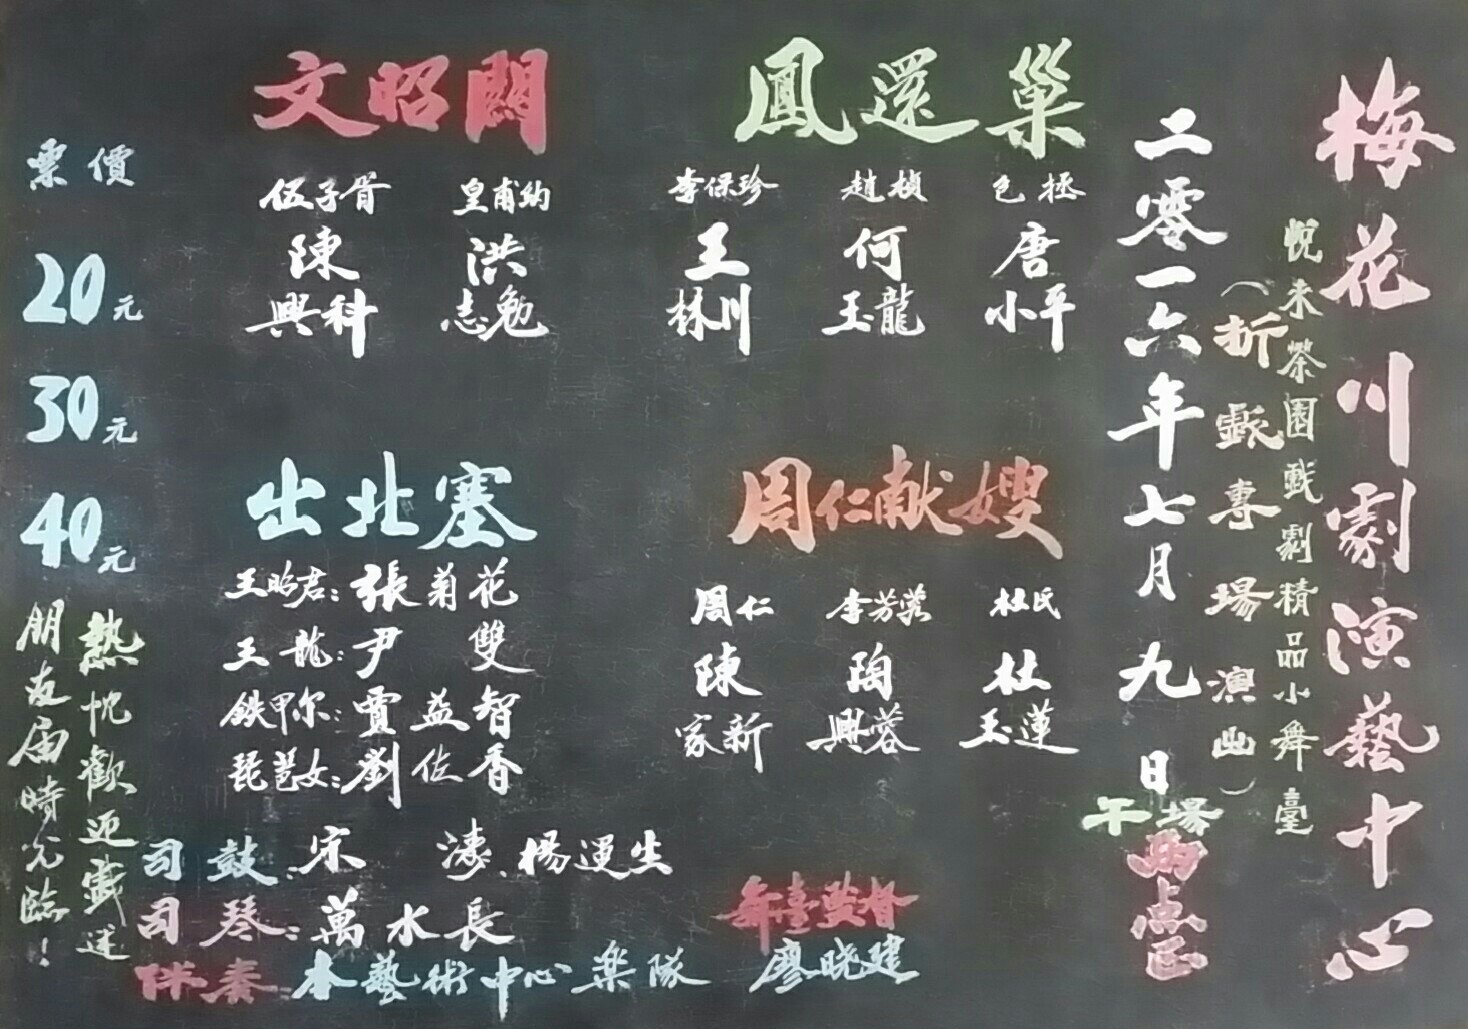 梅花川劇演藝中心
悅来茶園戲劇精品小舞臺
（折戲專場演出）
二零一六年七月九日
午場
两点正
鳳還巢
李保珍 趙禎 包拯
王林川 何玉龍 唐小平
文昭關
伍子胥 皇甫納
陳興科 洪志勉
周仁献嫂
周仁 李芳蓉 杜氏
陳家新 陶興蓉 杜玉蓮
出北塞
王昭君：張菊花
王龍：尹雙
鉄甲尔：賈益智
琵琶女：劉佐香
司鼓：宋濤、楊運生
司琴：萬水長
伴奏：本藝術中心楽隊
舞臺監督
廖晓建
票價
20元
30元
40元
熱忱歡迎戲迷
朋友届時光臨！